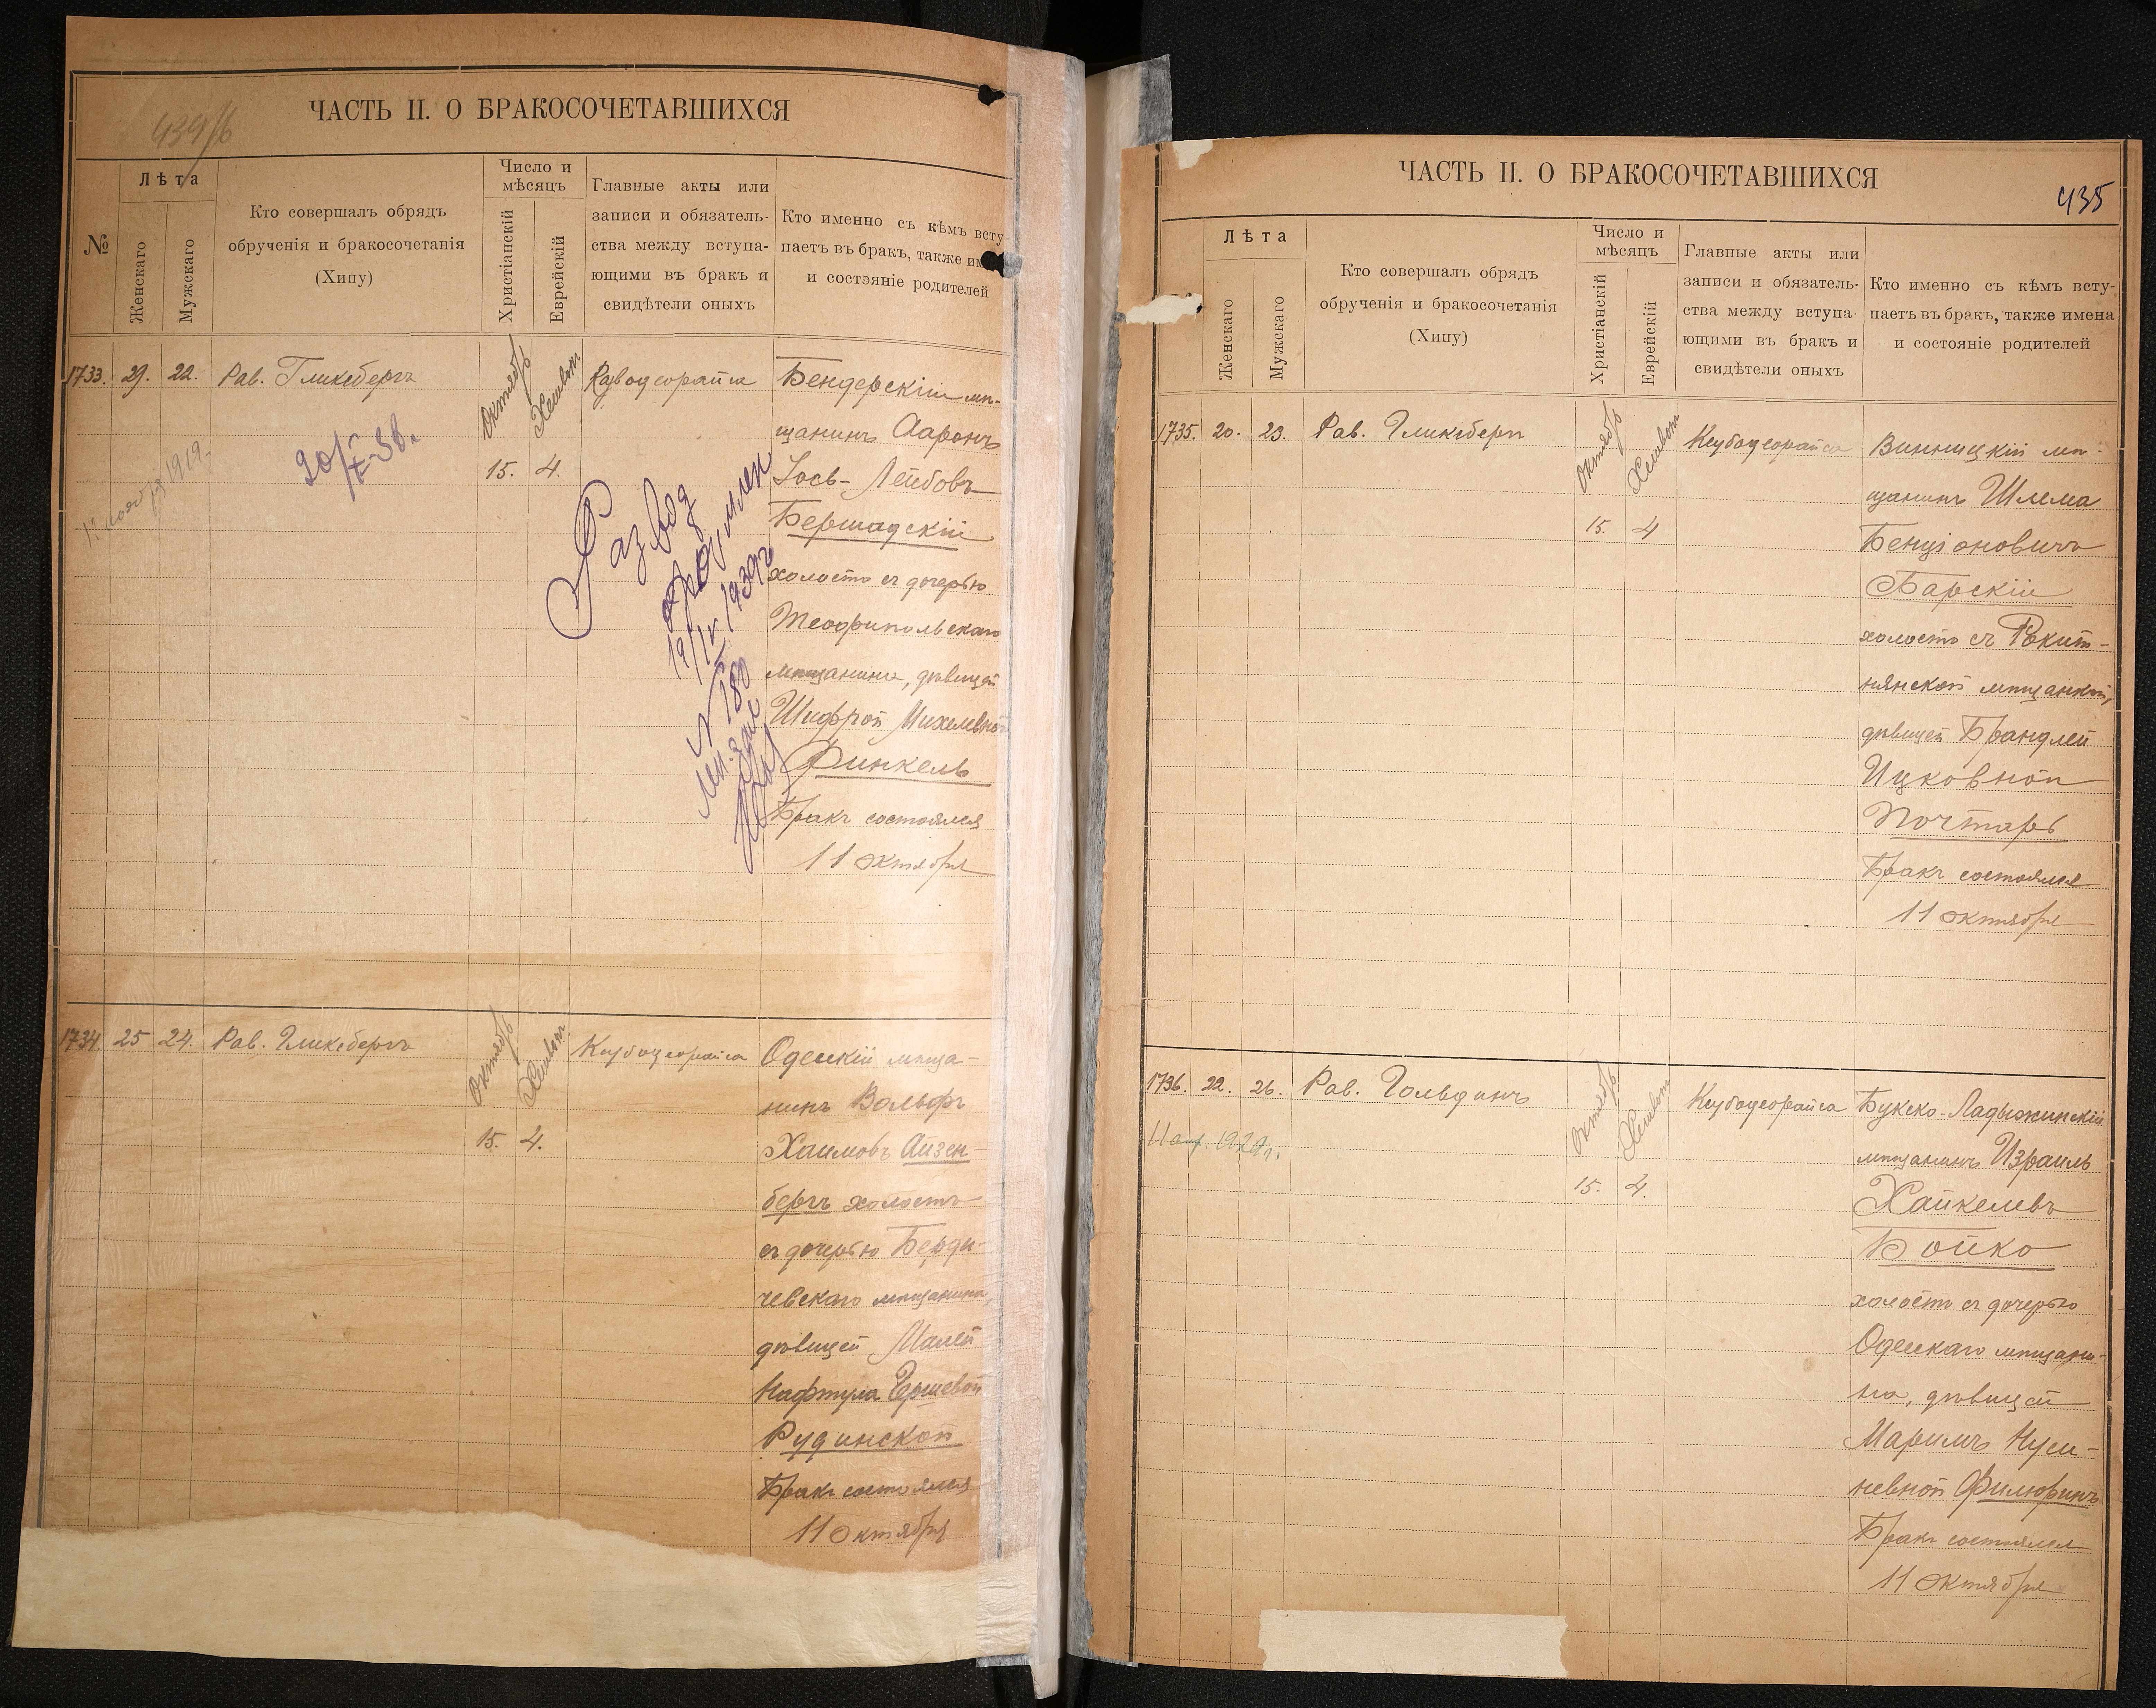 434/б
ЧАСТЬ II. О БРАКОСОЧЕТАВШИХСЯ
№
Лѣта
Женскаго
Мужскаго
Кто совершалъ обрядъ
обрученія и бракосочетанія
(Хипу)
Число и
мѣсяцъ
Христіанскій
Еврейскій
Главные акты или
записи и обязатель-
ства между вступа-
ющими въ бракъ и
свидѣтели оныхъ
Кто именно съ кѣмъ всту
паетъ въ бракъ, также им
и состояніе родителей
1733. 29. 22. Рав. Гликсбергъ
Октябрь
Хешвонъ
15. 4.
20/X-38г.
1919
Развод
оформлен
19/IV 1939г
№ 180
Бендерскій мѣ-
щанинъ Ааронъ
Іось-Лейбовъ
Бершадскій
холостъ съ дочерью
Теофипольскаго
мѣщанина, дѣвицей
Шифрой Михелевной
Финкель
Бракъ состоялся
11 октября
1734. 25 24. Рав. Гликсбергъ
Октябрь
Хешвонъ
15. 4.
Ксубодеорайса
Одесскій мѣща-
нинъ Вольфъ
Хаимовъ Айзен-
бергъ холостъ
съ дочерью Берди-
чевскаго мѣщанина,
дѣвицей Малей
Нафтула Гершевой
Рудинской
Бракъ состоялся
11 октября
ЧАСТЬ II. О БРАКОСОЧЕТАВШИХСЯ
435
Лѣта
Женскаго
Мужскаго
Кто совершалъ обрядъ
обрученія и бракосочетанія
(Хипу)
Число и
мѣсяцъ
Христіанскій
Еврейскій
Главные акты или
записи и обязатель-
ства между вступа-
ющими въ бракъ и
свидѣтели оныхъ
Кто именно съ кѣмъ всту-
паетъ въ бракъ, также имена
и состояніе родителей
1735. 20. 23. Рав. Гликсбергъ
Октябрь
Хешвонъ
15. 4
Ксубодеорайса
Винницкій мѣ-
щанинъ Шлема
Бенціоновичъ
Барскій
холостъ съ Рокит-
нянской мѣщанкой,
дѣвицей Брандлей
Ицковной
Почтарь
Бракъ состоялся
11 октября
1736. 22. 26. Рав. Гольдинъ
Октябрь
Хешвонъ
15. 4.
Ксубодеорайса
11 апр. 1929г.
Букско-Ладыжинскій
мѣщанинъ Израиль
Хайкелевъ
Бойко
холостъ съ дочерью
Одесскаго мѣщани-
на, дѣвицей
Маримъ Нуси-
невной Филюринъ
Бракъ состоялся
11 октября